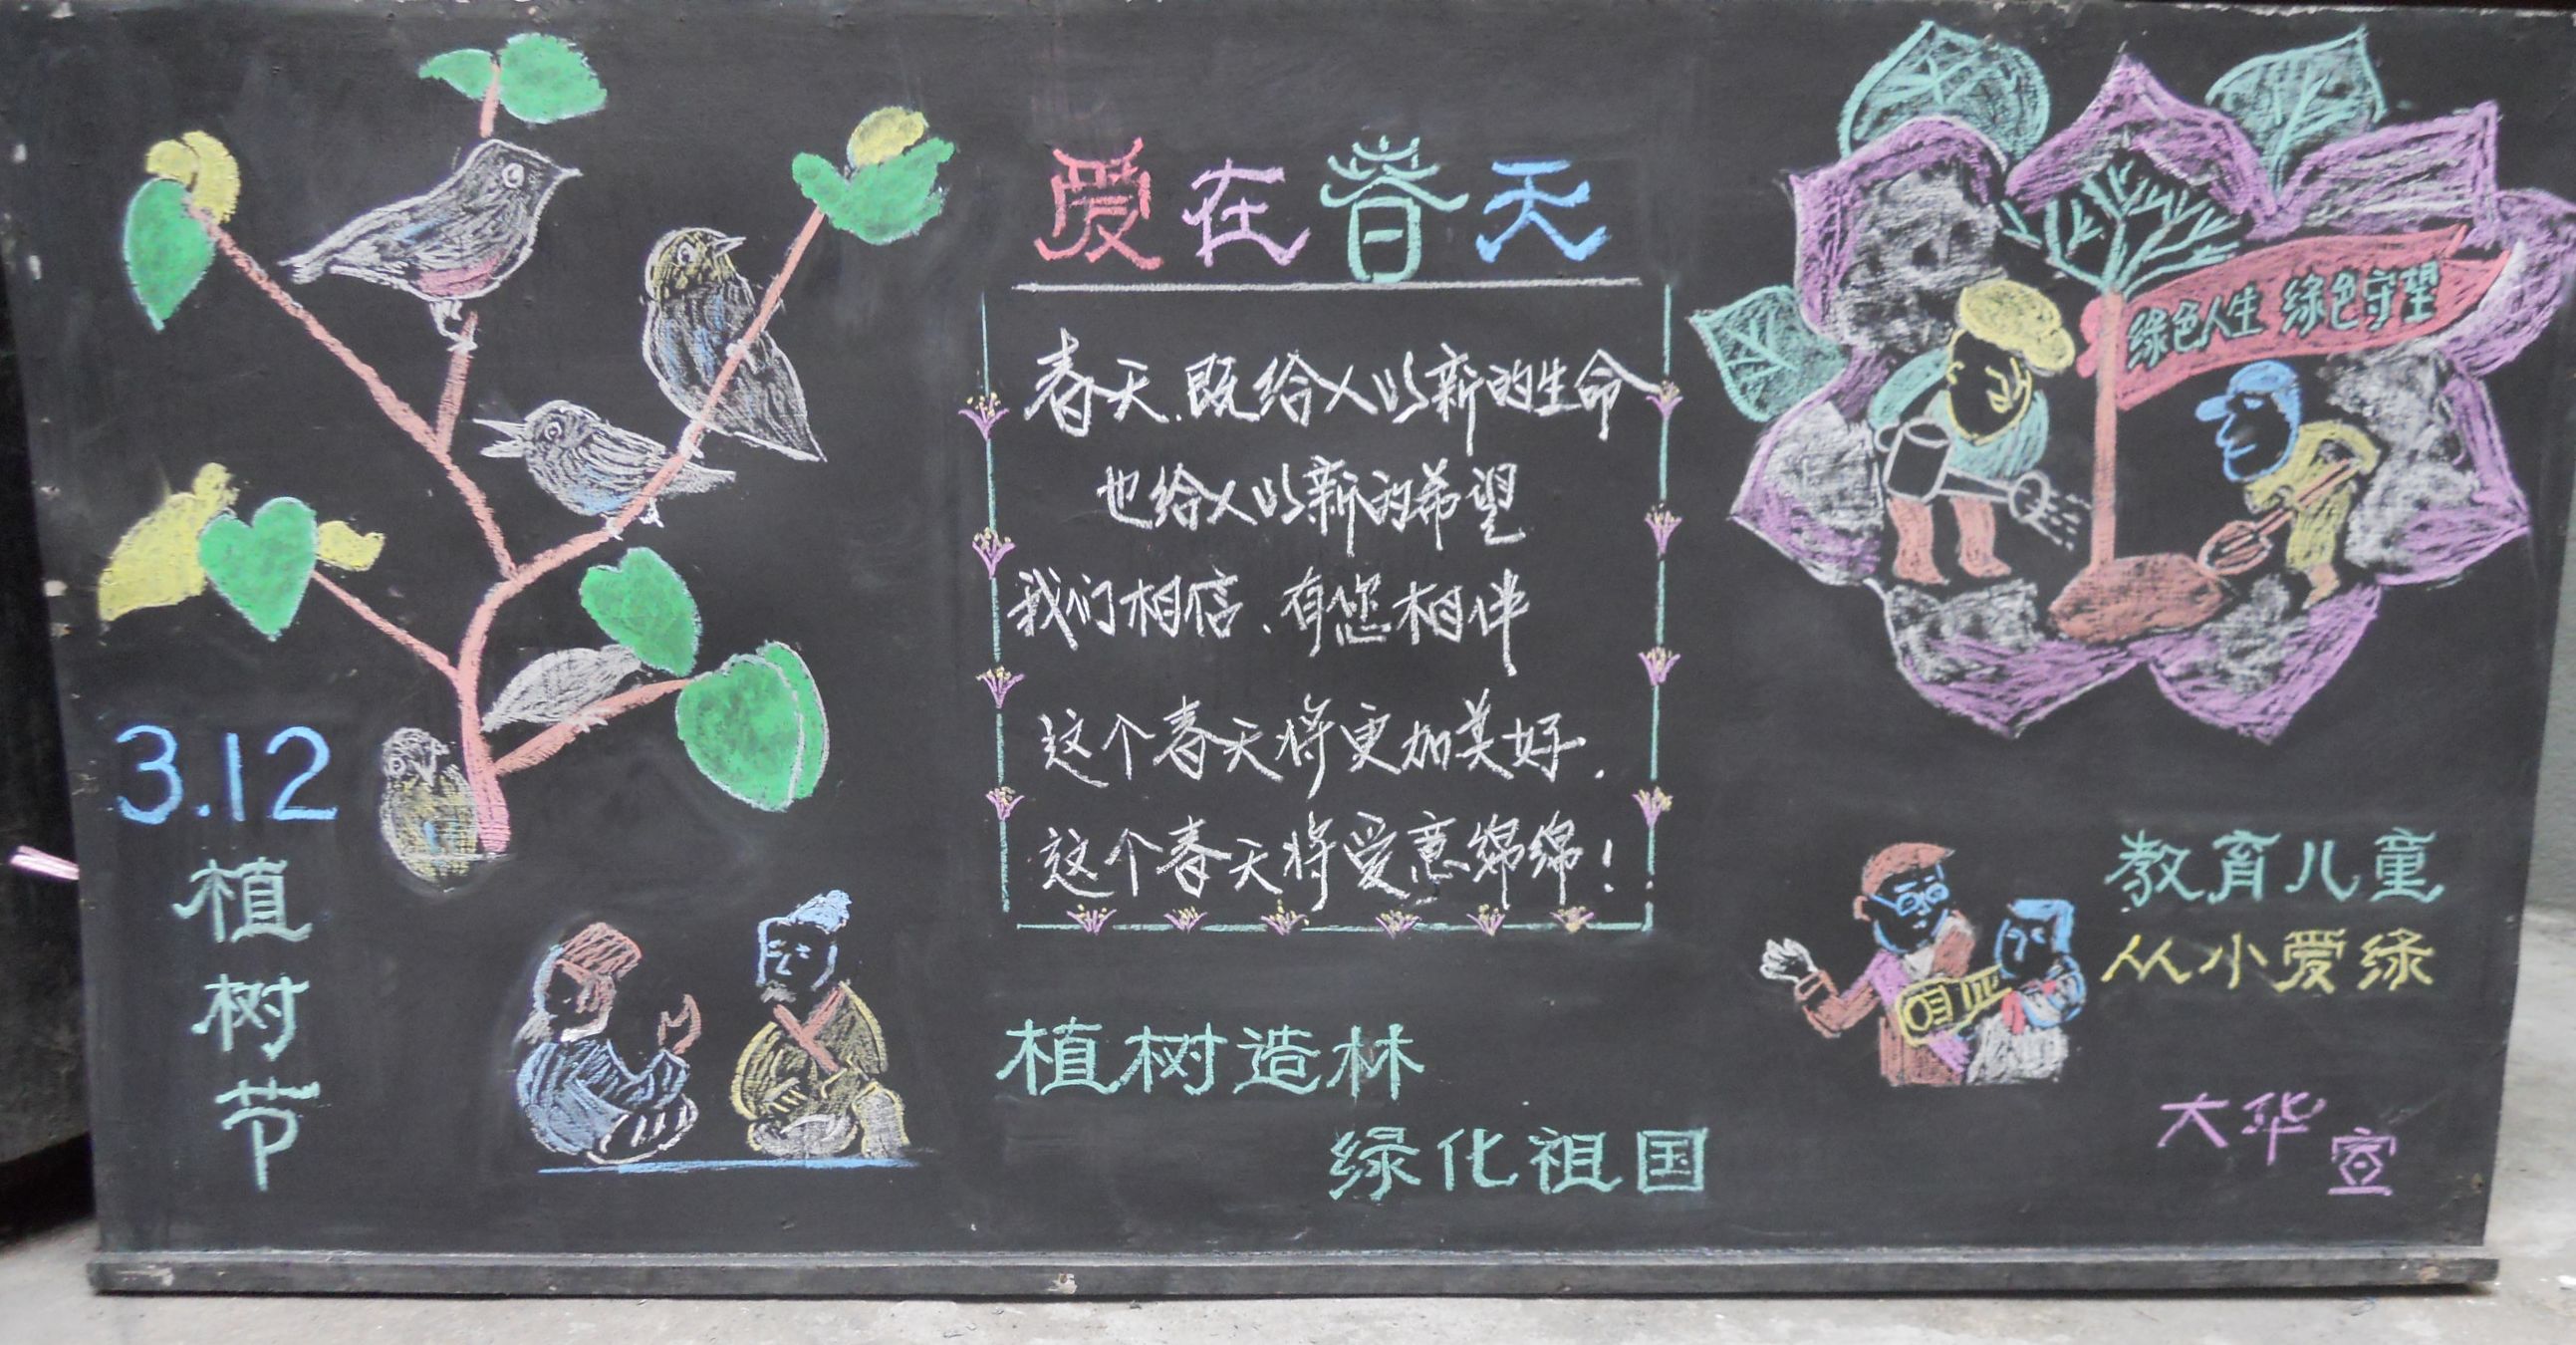 爱在春天
春天.既给人以新的生命
也给人以新的希望
我们相信、有您相伴
这个春天将更加美好.
这个春天将爱意绵绵!
绿色人生 绿色守望
3.12
植
树
节
植树造林
绿化祖国
教育儿童
从小爱绿
大华宣